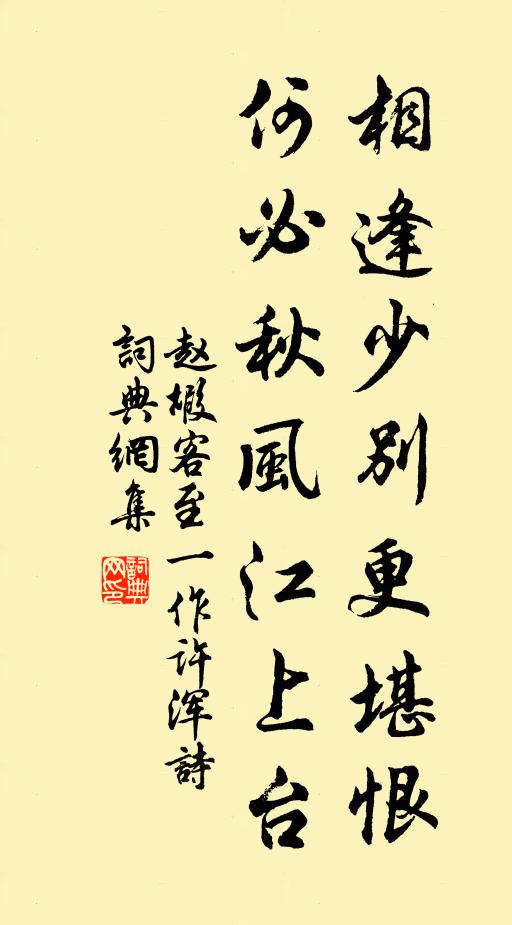 相逢少別更堪恨
何必秋風江上台
赵嘏客至一作许浑詩
詞典網集
詞典網印